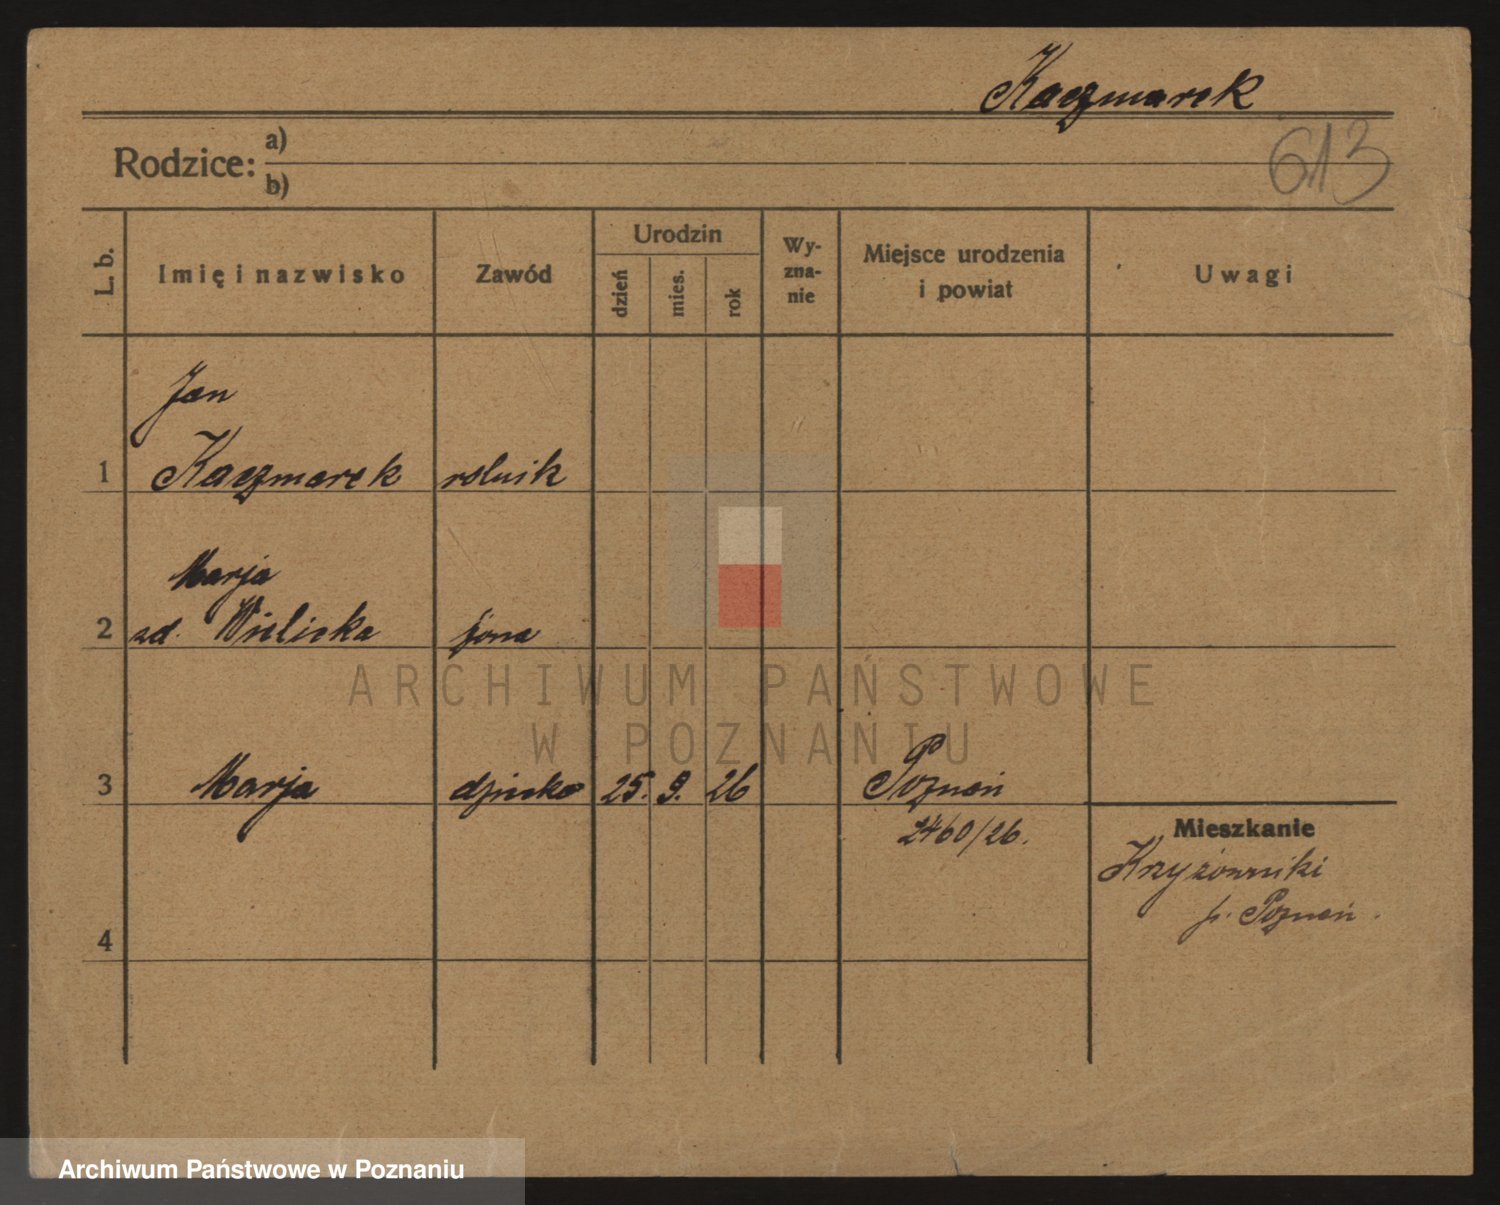 Kaczmarek
613
Rodzice: a)
b)
L. b.
Imię i nazwisko
Zawód
Urodzin
dzień
mies.
rok
Wy-
zna-
nie
Miejsce urodzenia
i powiat
Uwagi
Jan
1 Kaczmarek rolnik
Marja
2 zd. Wielicka żona
ARCHIWUM PAŃSTWOWE
W POZNANIU
3 Marja dziecko 25. 9. 26 Poznań
2460/26.
Mieszkanie
Krzyżowniki
p. Poznań.
4
Archiwum Państwowe w Poznaniu